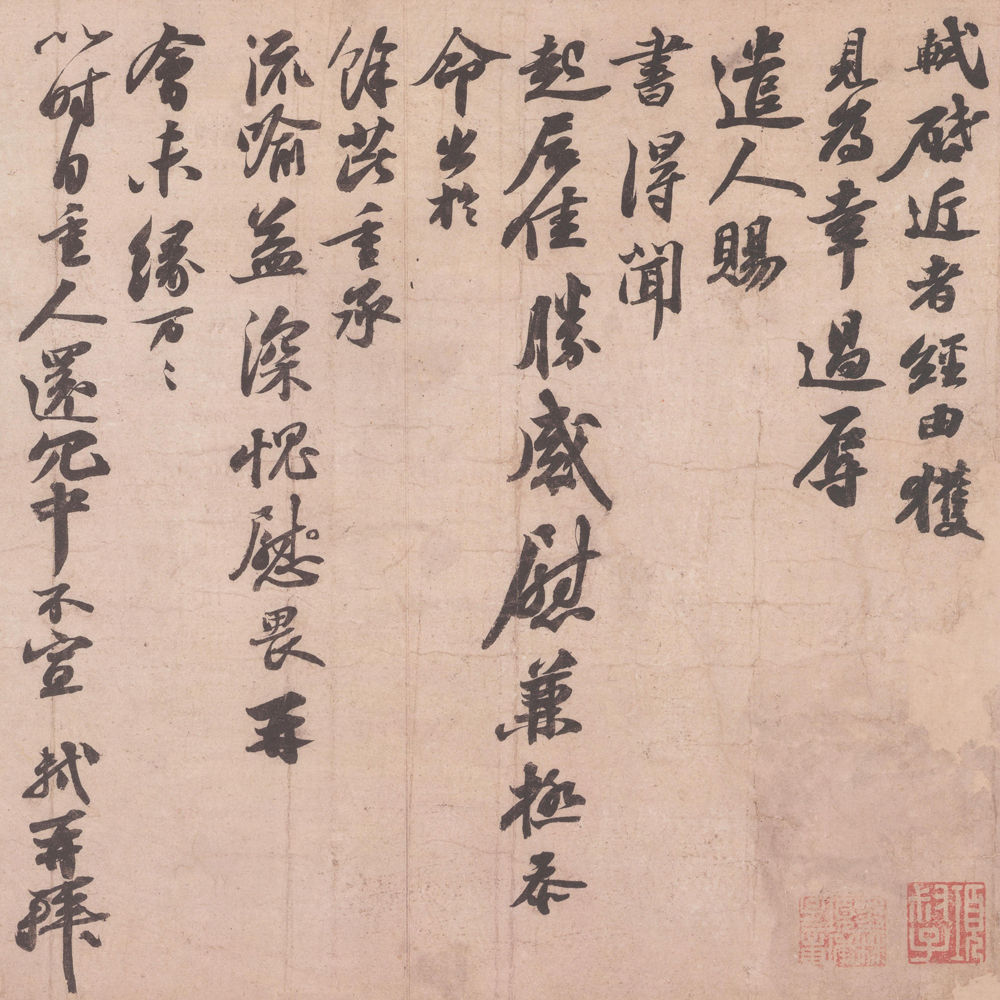 軾啓近者經由獲
見為幸過辱
遣人賜
書得聞
起居佳勝感慰兼極忝
命出於
餘芘重承
流喻益深愧慰畏再
會未緣万〻
以時自重人還冗中不宣 軾再拜